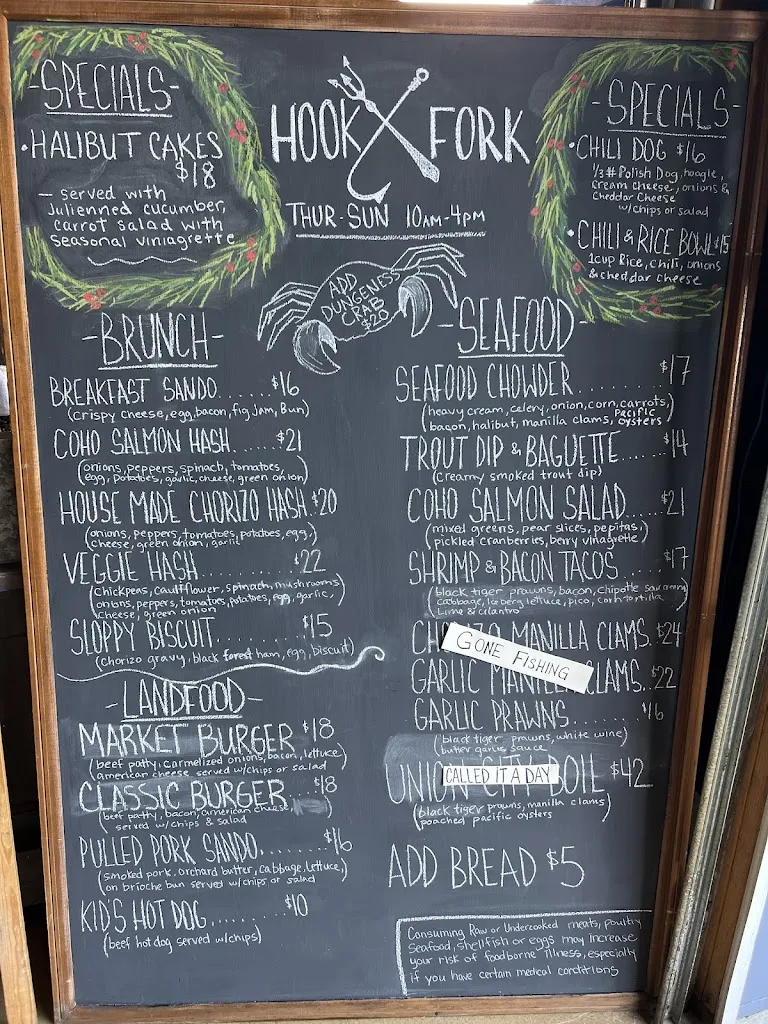 SPECIALS-
• HALIBUT CAKES
$18
– served with
Julienned cucumber,
carrot salad with
seasonal viniagrette
HOOK FORK
THUR-SUN 10AM-4PM
-SPECIALS-
• CHILI DOG $16
1/3# Polish Dog, hoagie,
cream cheese, onions &
cheddar cheese
w/chips or salad
• CHILI & RICE BOWL $15
1cup Rice, chili, onions
& cheddar cheese
ADD
DUNGENESS
CRAB
$20
-BRUNCH-
BREAKFAST SANDO....... $16
(crispy cheese, egg, bacon, fig jam, Bun)
COHO SALMON HASH...... $21
(onions, peppers, spinach, tomatoes,
egg, potatoes, garlic, cheese, green onion)
HOUSE MADE CHORIZO HASH.. $20
(onions, peppers, tomatoes, potatoes, egg,
cheese, green onion, garlic)
VEGGIE HASH........... $22
(chickpeas, cauliflower, spinach, mushrooms
onions, peppers, tomatoes, potatoes, egg, garlic,
cheese, green onion)
SLOPPY BISCUIT......... $15
(chorizo gravy, black forest ham, egg, biscuit)
-LANDFOOD-
MARKET BURGER $18
(beef patty, carmelized onions, bacon, lettuce,
american cheese served w/chips or salad)
CLASSIC BURGER $18
(beef patty, bacon, american cheese,
served w/ chips & salad
PULLED PORK SANDO......... $16
(smoked pork, orchard butter, cabbage, lettuce,
on brioche bun served w/chips or salad)
KID'S HOT DOG........ $10
(beef hot dog served w/chips)
-SEAFOOD-
SEAFOOD CHOWDER......... $17
(heavy cream, celery, onion, corn, carrots,
bacon, halibut, manilla clams, Pacific oysters)
TROUT DIP & BAGUETTE...... $14
(creamy smoked trout dip)
COHO SALMON SALAD..... $21
(mixed greens, pear slices, pepitas,
pickled cranberries, berry vinagrette)
SHRIMP & BACON TACOS.... $17
(black tiger prawns, bacon, chipotle
cabbage, iceberg lettuce, pico, corn tortilla
lime & cilantro
MANILLA CLAMS. $24
GONE FISHING
GARLIC CLAMS.. $22
GARLIC PRAWNS......... $16
(black tiger prawns, white wine)
butter garlic sauce
UNION CITY BOIL $42
CALLED IT A DAY
(black tiger prawns, manilla clams
poached pacific oysters
ADD BREAD $5
Consuming Raw or Undercooked meats, poultry
seafood, shellfish or eggs may increase
your risk of foodborne illness, especially
if you have certain medical conditions